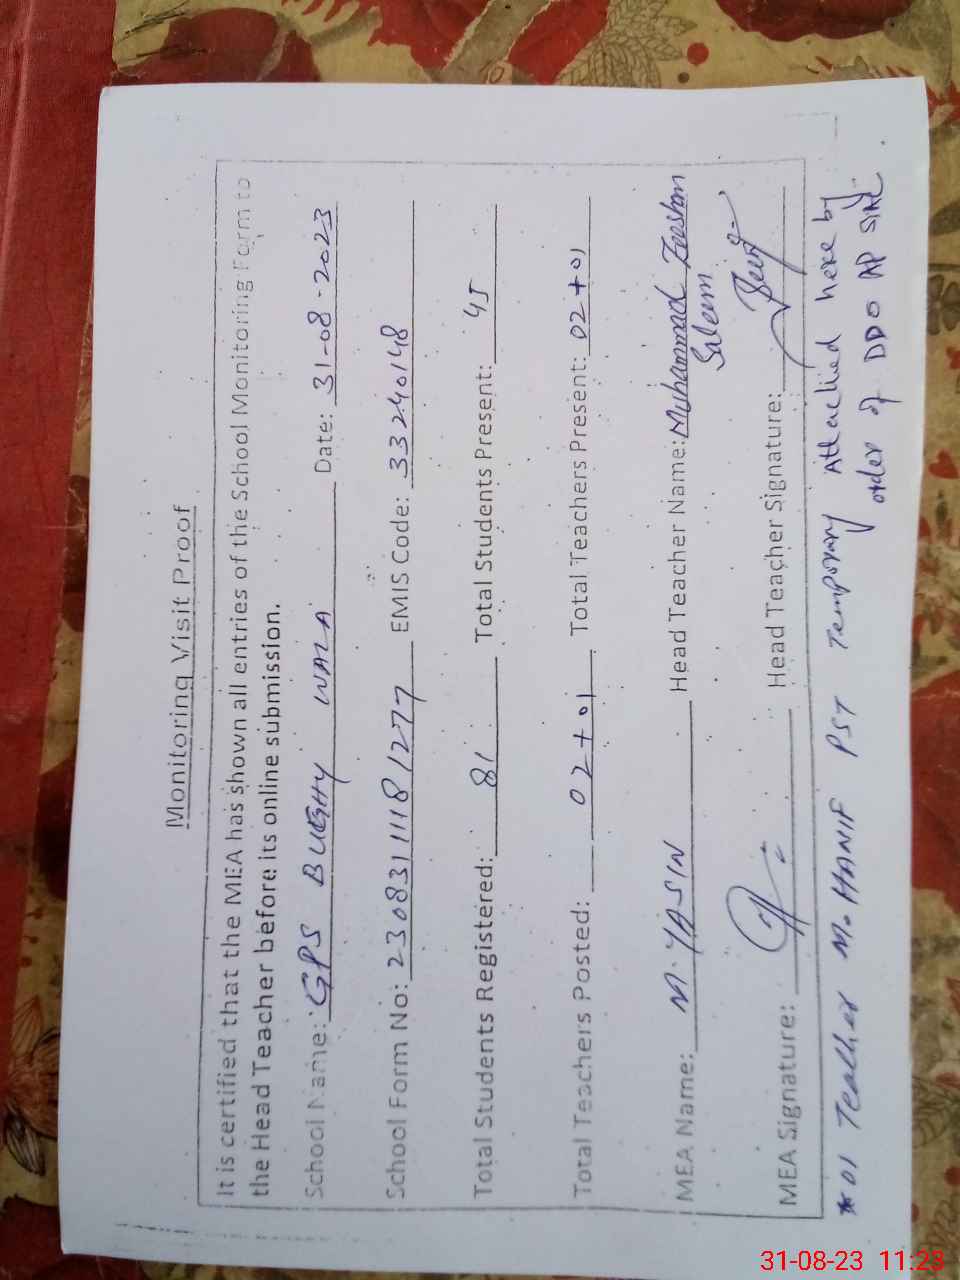 Monitoring Visit Proof
It is certified that the MEA has shown all entries of the School Monitoring Form to
the Head Teacher before its online submission.
School Name: GPS BUGHY WALA Date: 31-08-2023
School Form No: 2308311181277 EMIS Code: 33240148
Total Students Registered: 81 Total Students Present: 45
Total Teachers Posted: 02+01 Total Teachers Present: 02+01
MEA Name: M. YASIN Head Teacher Name: Muhammad Zeeshan
Saleem
MEA Signature: Head Teacher Signature:
*01 Teacher M. HANIF PST Temporary Attached here by
order of DDO
31-08-23 11:23